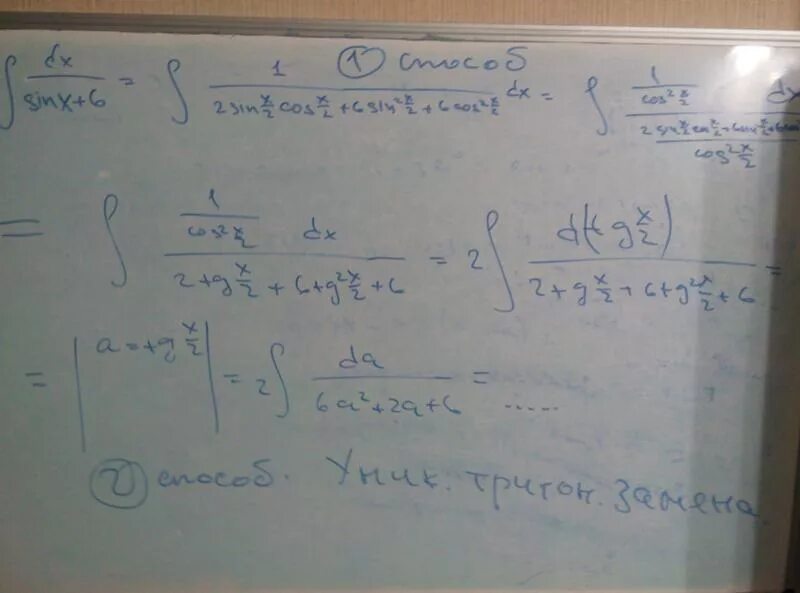 ① способ
∫ dx/(sinx+6) = ∫ 1/(2sin x/2 cos x/2 + 6sin² x/2 + 6cos² x/2) dx = ∫ (1/cos² x/2) dx / ((2sin x/2 cos x/2 + 6sin² x/2 + 6cos)/(cos² x/2))
= ∫ (1/cos² x/2) dx / (2tg x/2 + 6tg² x/2 + 6) = 2∫ d(tg x/2) / (2tg x/2 + 6tg² x/2 + 6) =
= | a = tg x/2 | = 2∫ da/(6a²+2a+6) = .....
② способ. Уник. тригон. замена.